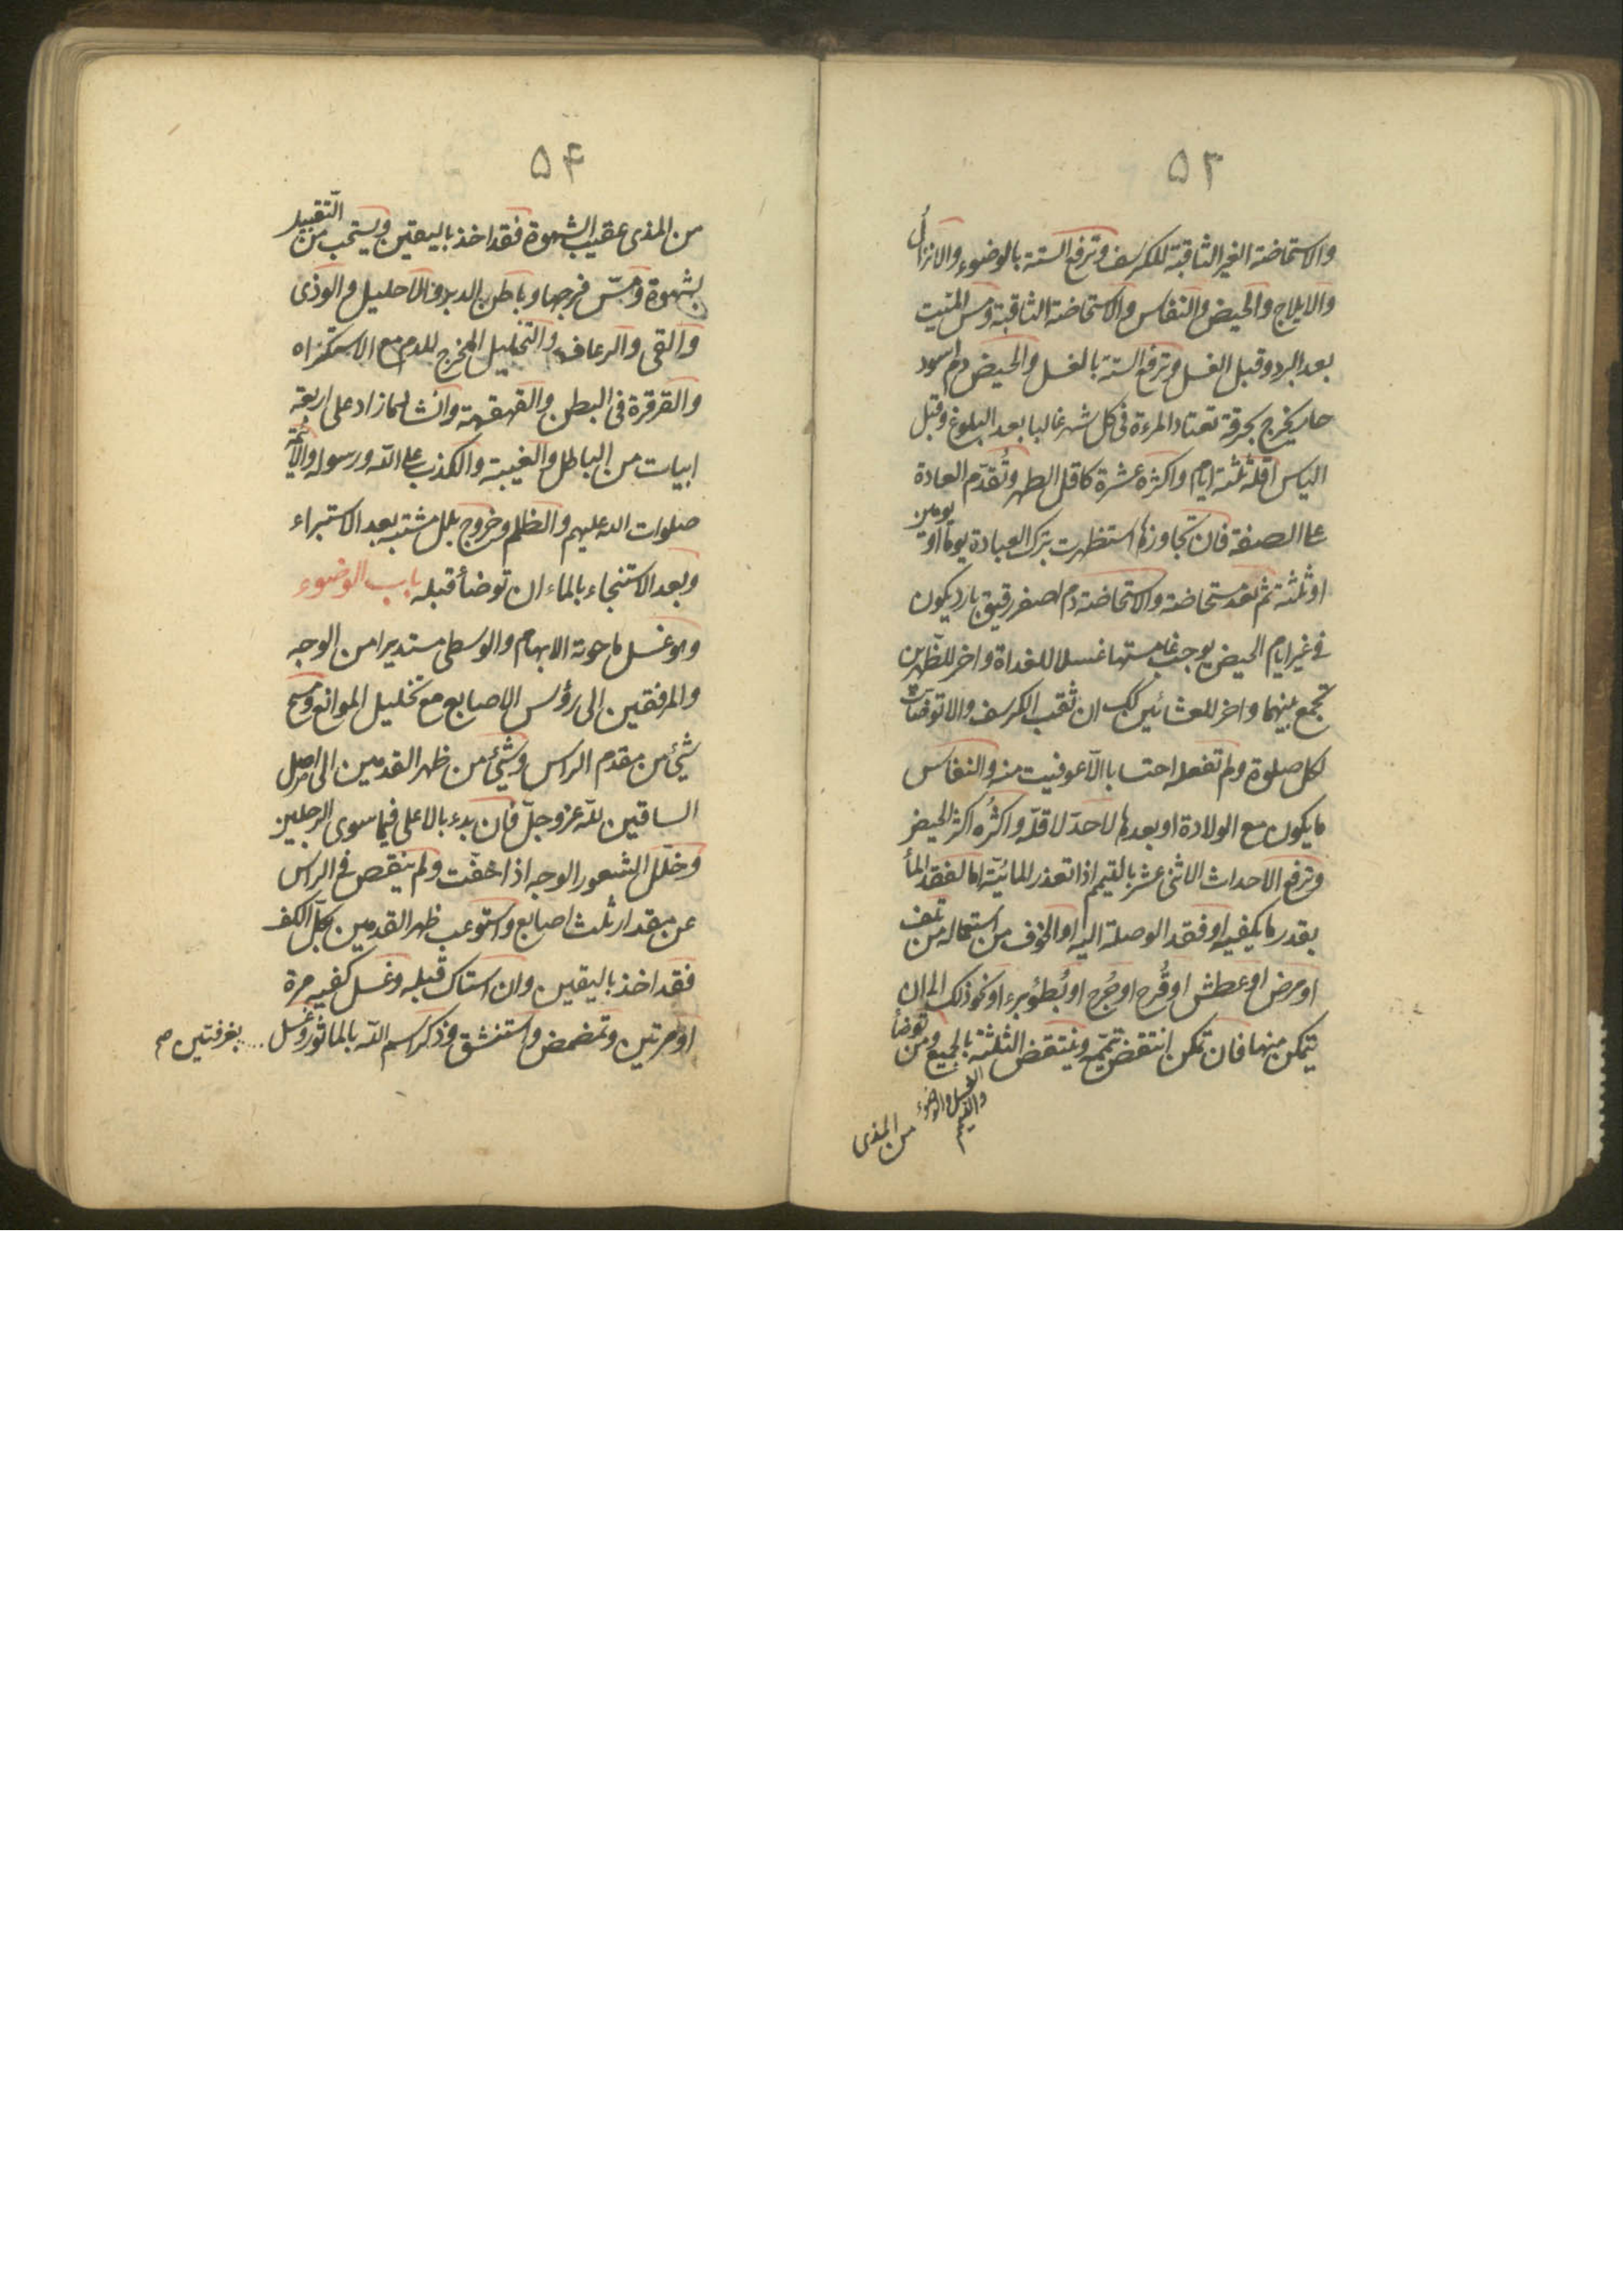 ۵۳
والاستحاضة الغير الثاقبة للكرسف وترفع الستة بالوضوء والانزال
والايلاج والحيض والنفاس والاستحاضة الثاقبة ومس الميت
بعد البرد وقبل الغسل وترفع الستة بالغسل والحيض دم اسود
حار يخرج بحرقة تعتاد المرءة فى كل شهر غالبا بعد البلوغ وقبل
الياس اقله ثلثة ايام واكثره عشرة كاقل الطهر وتُقدّم العادة
على الصفة فان تجاوزها استظهرت بترك العبادة يوما او يومين
او ثلثة ثم تعد مستحاضة والاستحاضة دم اصفر رقيق بارد يكون
فى غير ايام الحيض يوجب غامستها غسلا للغداة واخر للظهرين
تجمع بينهما واخر للعشائين كك ان ثقب الكرسف والا توضأت
لكل صلوة ولم تفعله احتسابا الّا عوفيت منه والنفاس
ما يكون مع الولادة او بعدها لا حدّ لاقلّه واكثُره اكثر الحيض
وترفع الاحداث الاثنى عشر بالتيمم اذا تعذر المائيّة اما لفقد الماء
بقدر ما يكفيه او فقد الوصلة اليه او الخوف من استعماله من تلف
او مرض او عطش او قُرح او جُرح او بُطؤ برء او نحو ذلك الى ان
يتمكن منها فان تمكن انتقض تيمّمه وينتقض الثلثة بالجميع ومن توضأ
الغسل والوضوء
والتيمم
من المذى
۵۴
من المذى عقيب الشهوة فقد اخذ باليقين ويستحب من التقبيل
بشهوة ومسّ فرجها وباطن الدبر والاحليل والوذى
والقى والرعاف والتخليل المخرج للدم مع الاستكراه
والقرقرة فى البطن والقهقهة وانشاد ما زاد على اربعة
ابيات من الباطل والغيبة والكذب على اللّه ورسوله والائمّة
صلوات الله عليهم والظلم وخروج بلل مشتبه بعد الاستبراء
وبعد الاستنجاء بالماء ان توضأ قبله باب الوضوء
وهو غسل ما حوته الابهام والوسطى مستديرا من الوجه
والمرفقين الى رؤس الاصابع مع تخليل الموانع ومسح
شئ من مقدم الراس وشئ من ظهر القدمين الى اصل
الساقين للّه عز وجلّ فان بدء بالاعلى فيما سوى الرجلين
وخلّل الشعور الوجه اذا خفّت ولم ينقص فى الراس
عن مقدار ثلث اصابع واستوعب ظهر القدمين بكلّ الكف
فقد اخذ باليقين وان استاك قبله وغسل كفيه مرة
او مرتين وتمضمض واستنشق وذكر اسم اللّه بالماثور وغسل
بغرفتين صح